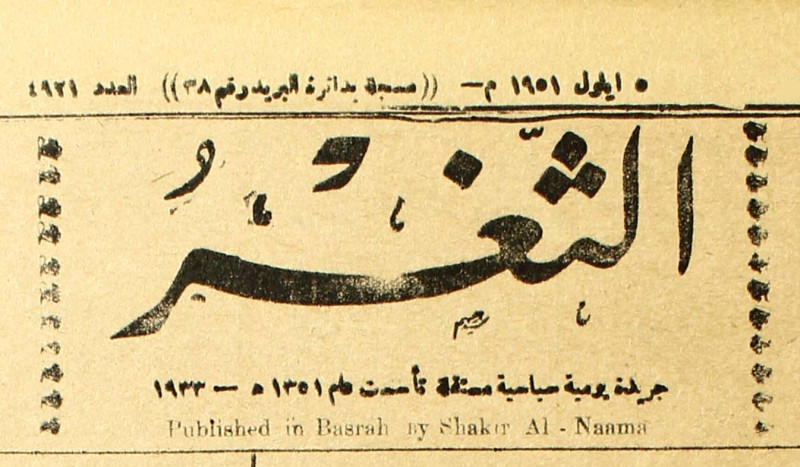 ٥ ايلول ١٩٥١ م — ((مسجلة بدائرة البريد رقم ٣٨)) العدد ٤٩٢١
الثَّغْرُ
جريدة يومية سياسية مستقلة تأسست عام ١٣٥١ ه — ١٩٣٣
Published in Basrah by Shakir Al - Naama